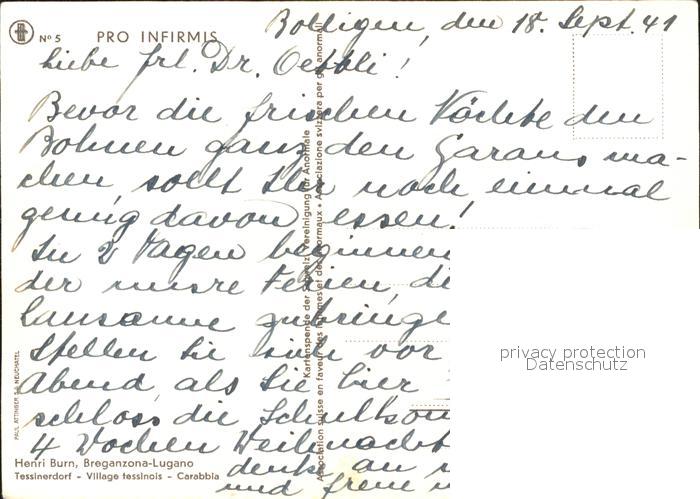 Nº 5 PRO INFIRMIS
Boltigen, den 18. Sept. 41
Liebe Frl. Dr. Oettli!
Bevor die frischen Nächte den
Bohnen ganz den Garaus ma-
chen, sollt Ihr noch einmal
genug davon essen!
In 2 Tagen beginnen
der unsre Ferien, di
Lausanne zubringe
Stellen Sie sich vor
Abend als Sie hier
schloss die Schulkom
4 Wochen Weihnacht
denke an
und freue
Kartenspende der Schweiz. Vereinigung für Anormale
Association suisse en faveur des infirmes et des anormaux • Associazione svizzera per gli anormali
PAUL ATTINGER S.A. NEUCHATEL
Henri Burn, Breganzona-Lugano
Tessinerdorf – Village tessinois – Carabbia
privacy protection
Datenschutz